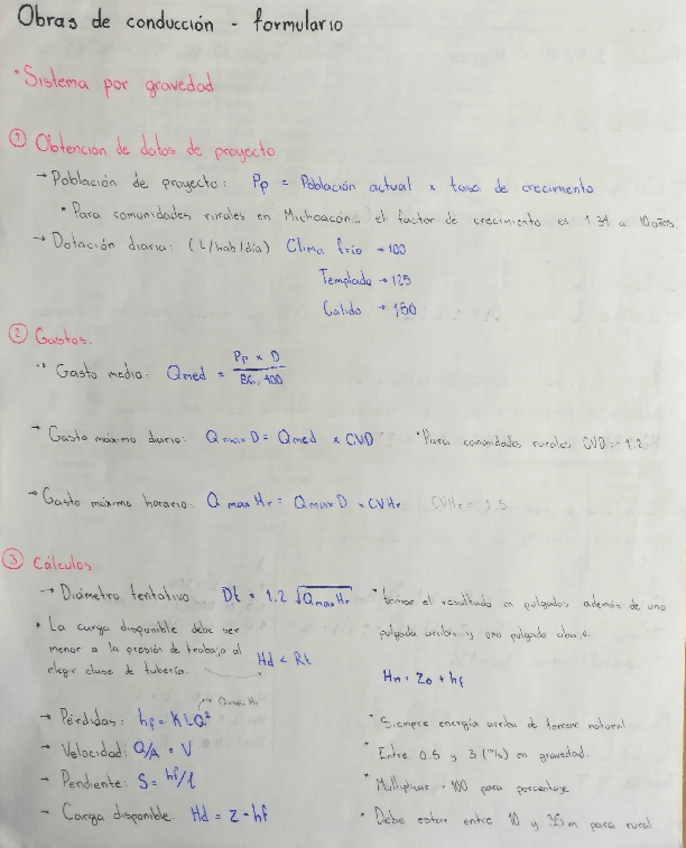 Obras de conducción - formulario
• Sistema por gravedad
① Obtención de datos de proyecto
→ Población de proyecto: Pp = Población actual x tasa de crecimiento
• Para comunidades rurales en Michoacán el factor de crecimiento es 1.34 a 10 años.
→ Dotación diaria: (L/hab/día) Clima frío → 100
Templado → 125
Cálido → 150
② Gastos.
→ Gasto medio: Qmed = Pp x D / 86,400
→ Gasto máximo diario: Q max D = Qmed x CVD • Para comunidades rurales CVD = 1.2
→ Gasto máximo horario: Q max Hr = Q max D x CVHr CVHr = 1.5
③ Cálculos
→ Diámetro tentativo Dt = 1.2 √Qmax Hr • tomar el resultado en pulgadas además de una
pulgada arriba y una pulgada abajo.
• La carga disponible debe ser
menor a la presión de trabajo al
elegir clase de tubería. Hd < Rt
Hn = Zo + hf
→ Pérdidas: hf = KLQ² → Qmax Hr • Siempre energía arriba de terreno natural
→ Velocidad: Q/A = V • Entre 0.5 y 3 (m/s) en gravedad.
→ Pendiente: S = hf/l • Multiplicar x 100 para porcentaje
→ Carga disponible: Hd = z - hf • Debe estar entre 10 y 35 m para rural